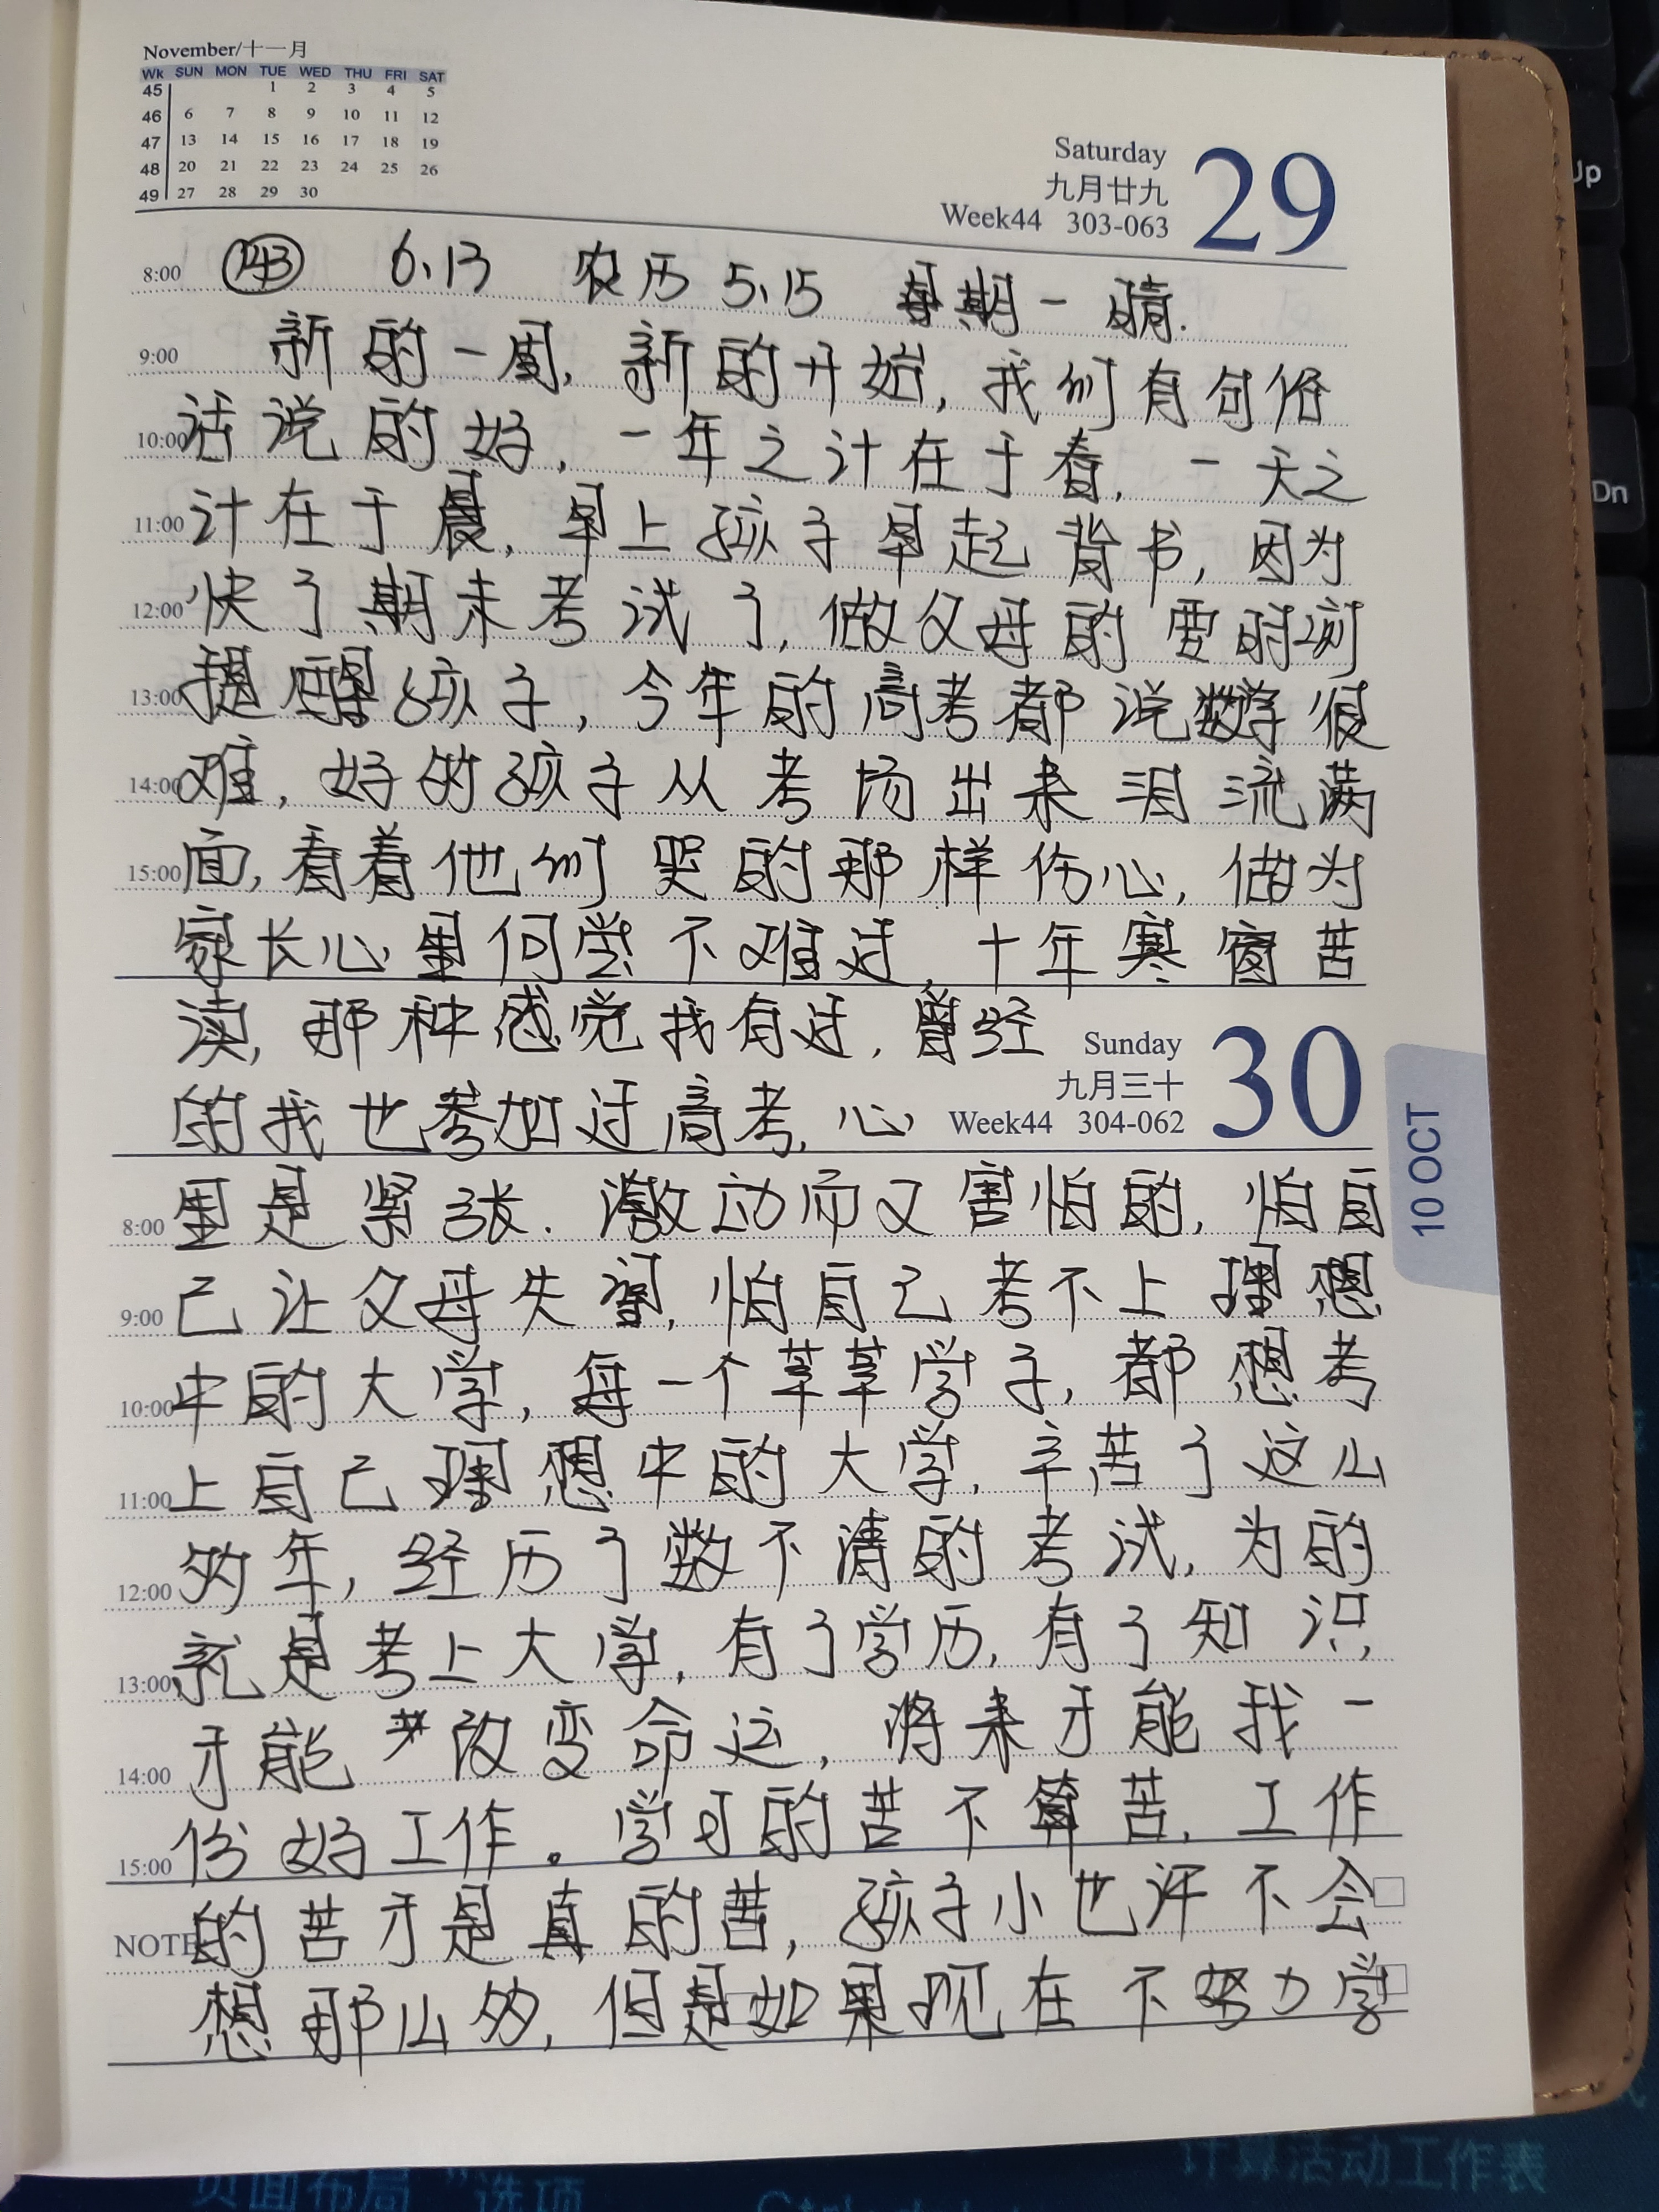 November/十一月
Wk SUN MON TUE WED THU FRI SAT
45 1 2 3 4 5
46 6 7 8 9 10 11 12
47 13 14 15 16 17 18 19
48 20 21 22 23 24 25 26
49 27 28 29 30
Saturday
九月廿九
Week44 303-063
29
8:00 243 6.13 农历 5.15 星期一 晴.
9:00 新的一周,新的开始,我们有句俗
10:00 话说的好,一年之计在于春,一天之
11:00 计在于晨,早上孩子早起背书,因为
12:00 快了期末考试了,做父母的要时刻
13:00 提醒孩子,今年的高考都说数学很
14:00 难,好的孩子从考场出来泪流满
15:00 面,看着他们哭的那样伤心,做为
家长心里何尝不难过,十年寒窗苦
读,那种感觉我有过,曾经
的我也参加过高考,心
Sunday
九月三十
Week44 304-062
30
10 OCT
8:00 里是紧张.激动而又害怕的,怕自
9:00 己让父母失望,怕自己考不上理想
10:00 中的大学,每一个莘莘学子,都想考
11:00 上自己理想中的大学,辛苦了这么
12:00 多年,经历了数不清的考试,为的
13:00 就是考上大学,有了学历,有了知识
14:00 才能改变命运,将来才能找一
15:00 份好工作。学习的苦不算苦,工作
NOTE 的苦才是真的苦,孩子小也许不会
想那么多,但是如果现在不努力学
Up
Dn
页面布局 "选项
计算活动工作表